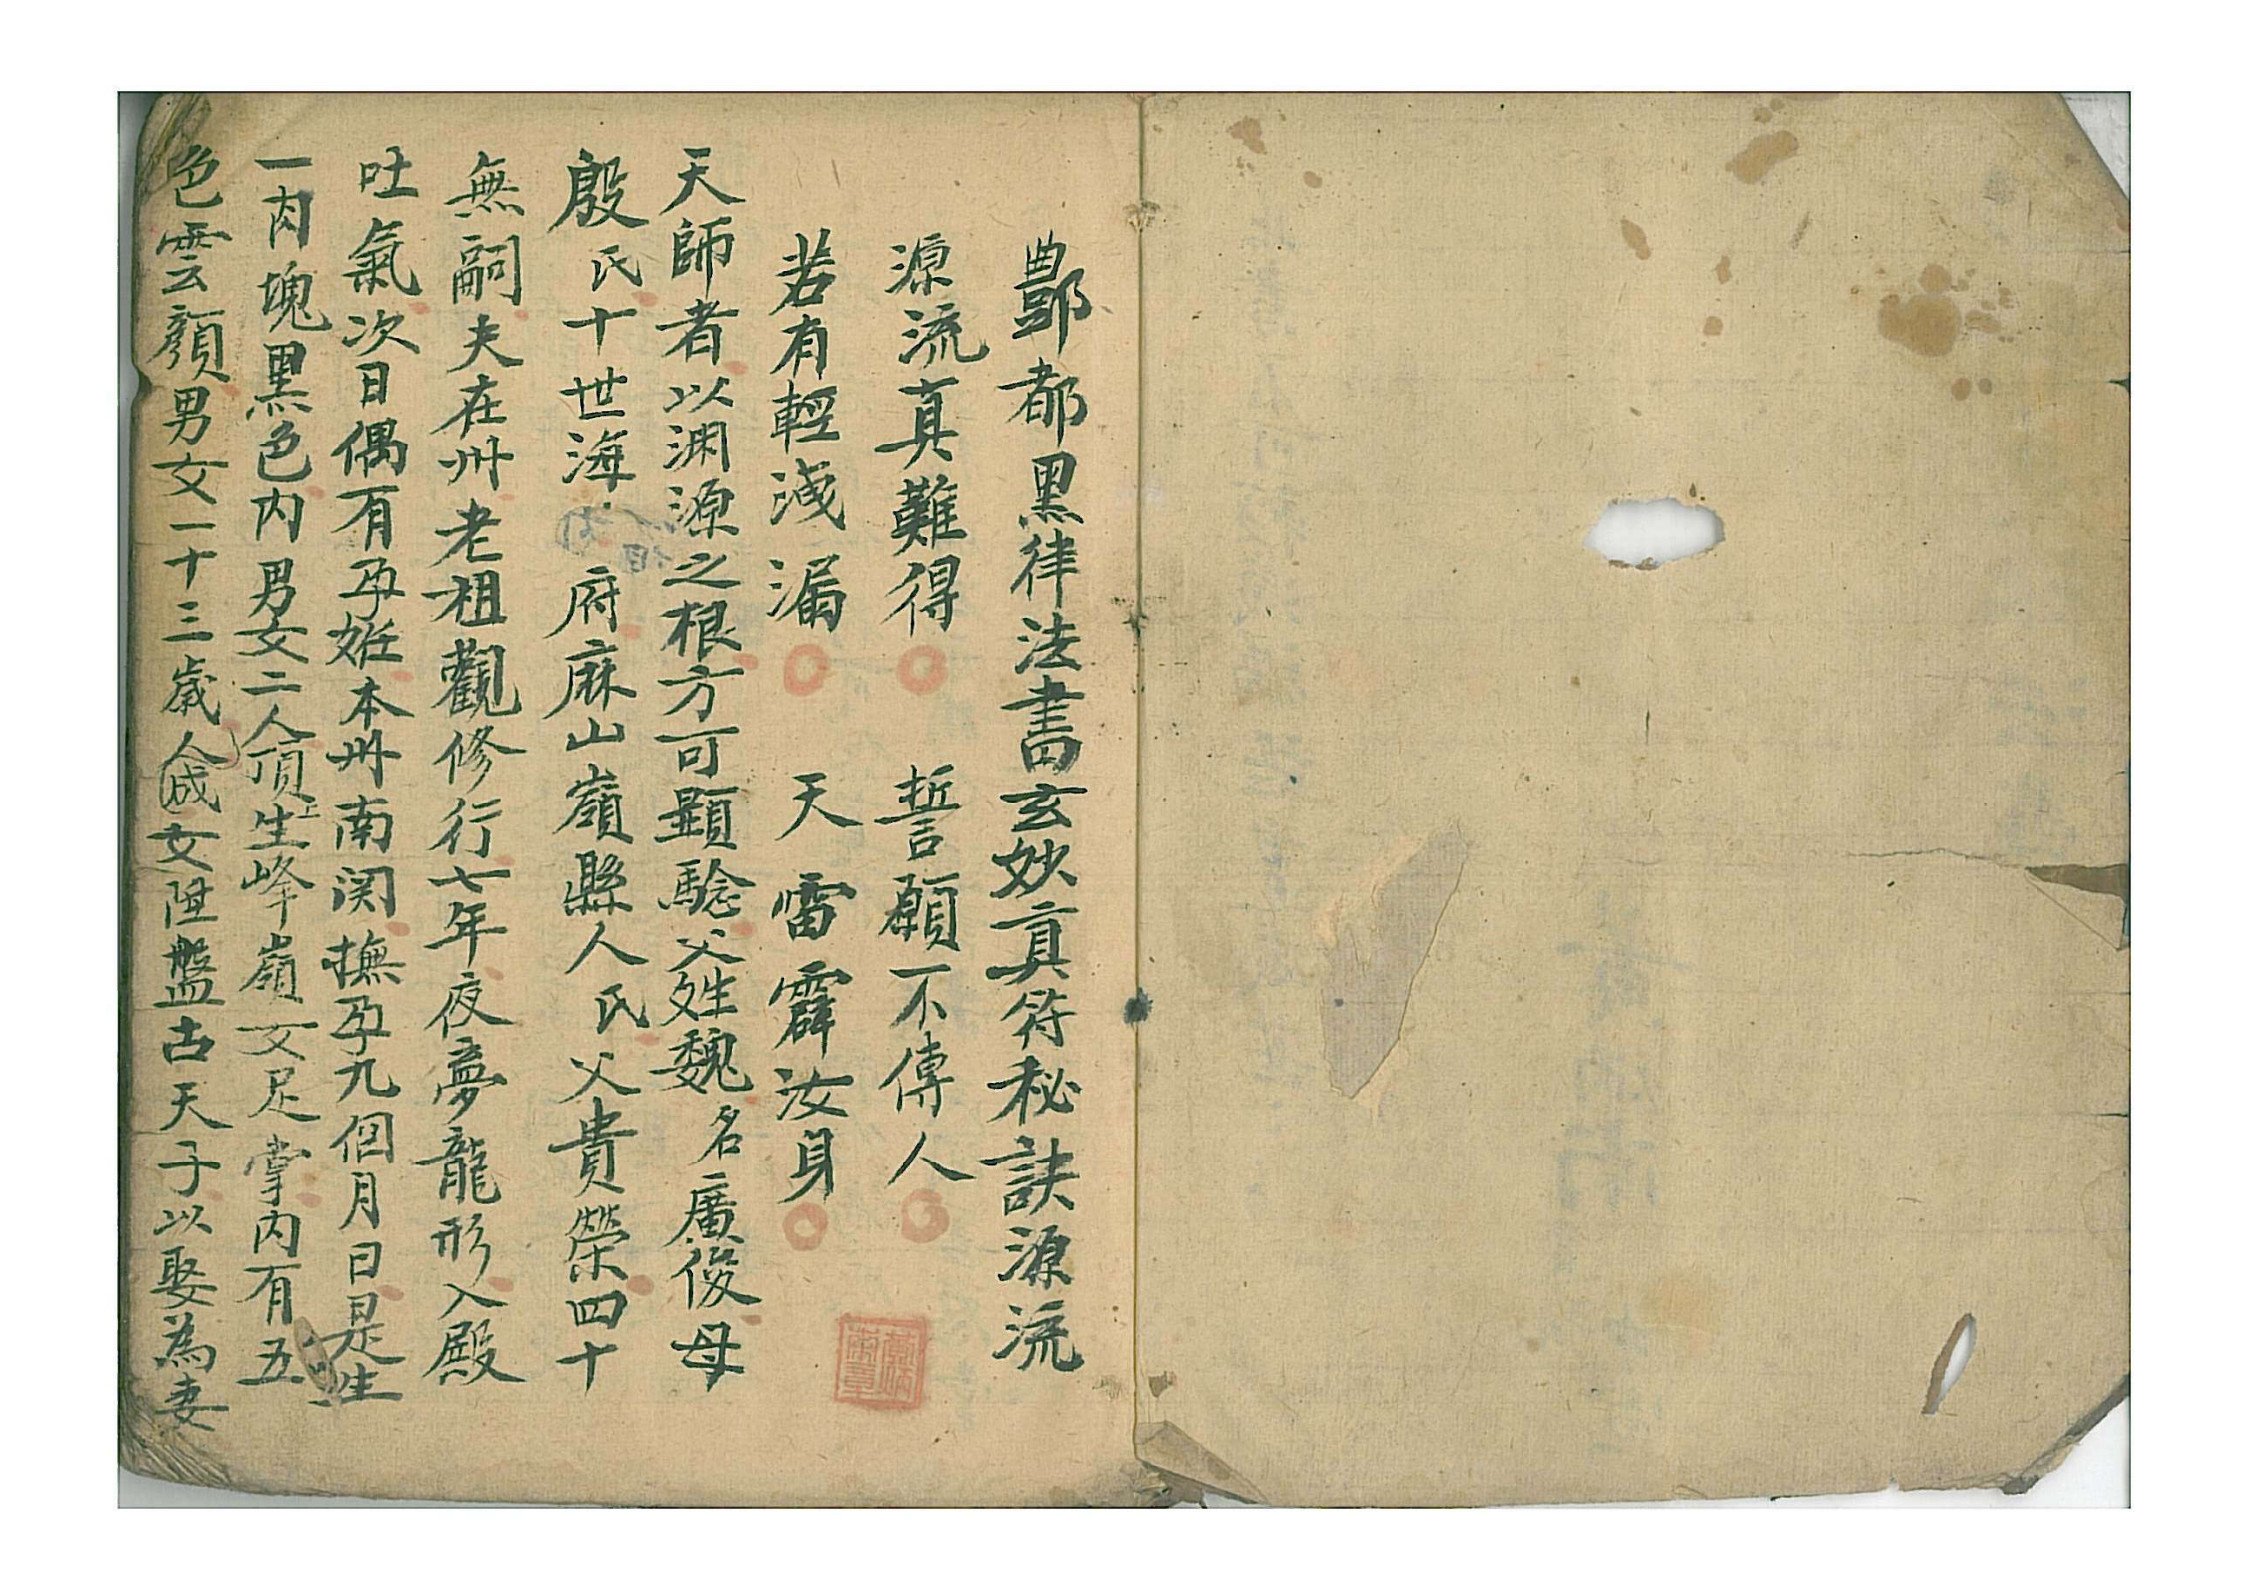 酆都黑律法書玄妙真符秘訣源流
源流真難得　誓願不傳人
若有輕洩漏　天雷霹汝身
天師者以渊源之根方可顕騐父姓魏名廣俊母
殷氏十世海府麻山嶺縣人氏父貴榮四十
無嗣夫在州老祖觀修行七年夜夢龍形入殿
吐氣次日偶有孕姙本州南関撫孕九個月日是生
一肉塊黑色内男女二人頂上生峰嶺女足掌内有五
色雲顔男女一十三歲人成女陞盤古天子以娶為妻